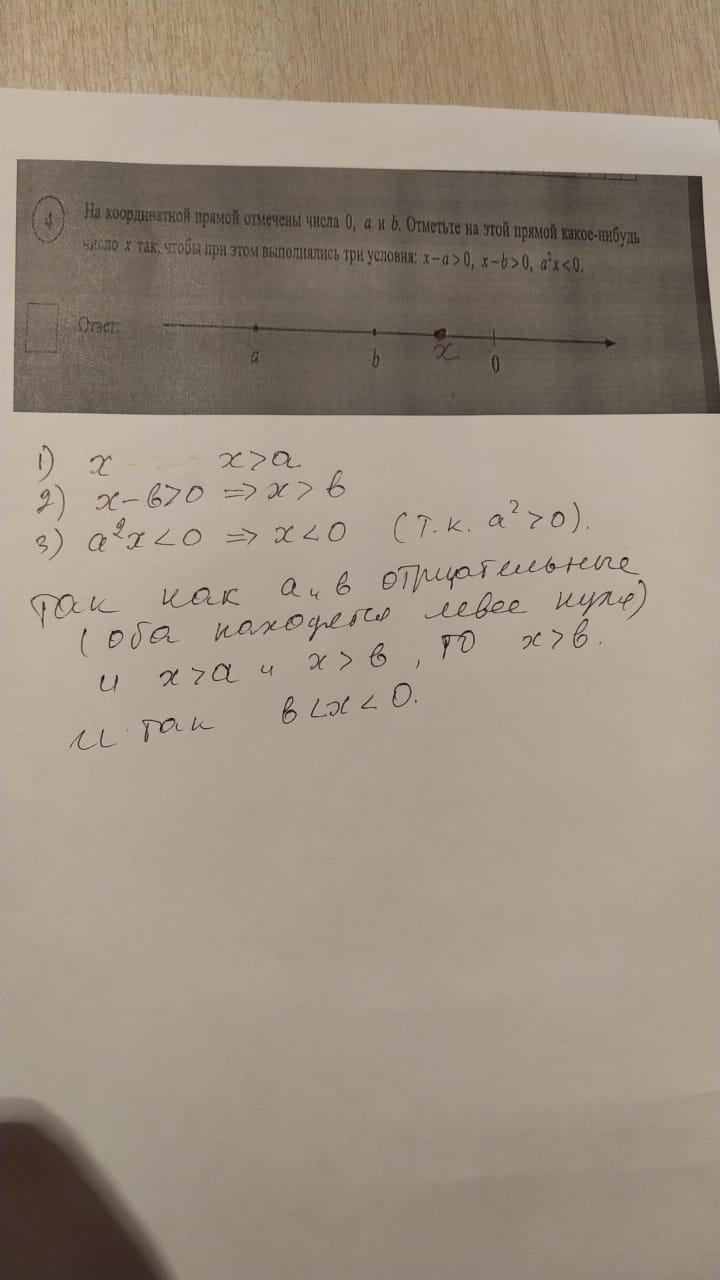 4
На координатной прямой отмечены числа 0, a и b. Отметьте на этой прямой какое-нибудь
число x так, чтобы при этом выполнялись три условия: x−a>0, x−b>0, a²x<0.
Ответ:
a b x 0
1) x x>a
2) x−в>0 => x>в
3) a²x<0 => x<0 (т.к. a²>0).
Так как a и в отрицательные
(оба находятся левее нуля)
и x>a и x>в, то x>в.
И так в<x<0.